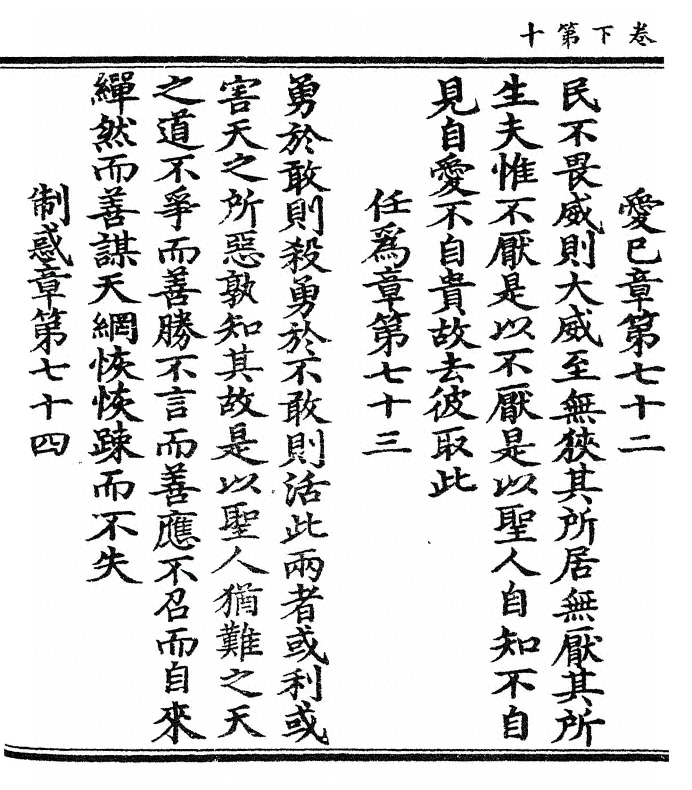 卷下第十
愛已章第七十二
民不畏威則大威至無狹其所居無厭其所
生夫惟不厭是以不厭是以聖人自知不自
見自愛不自貴故去彼取此
任爲章第七十三
勇於敢則殺勇於不敢則活此兩者或利或
害天之所惡孰知其故是以聖人猶難之天
之道不爭而善勝不言而善應不召而自來
繟然而善謀天網恢恢踈而不失
制惑章第七十四